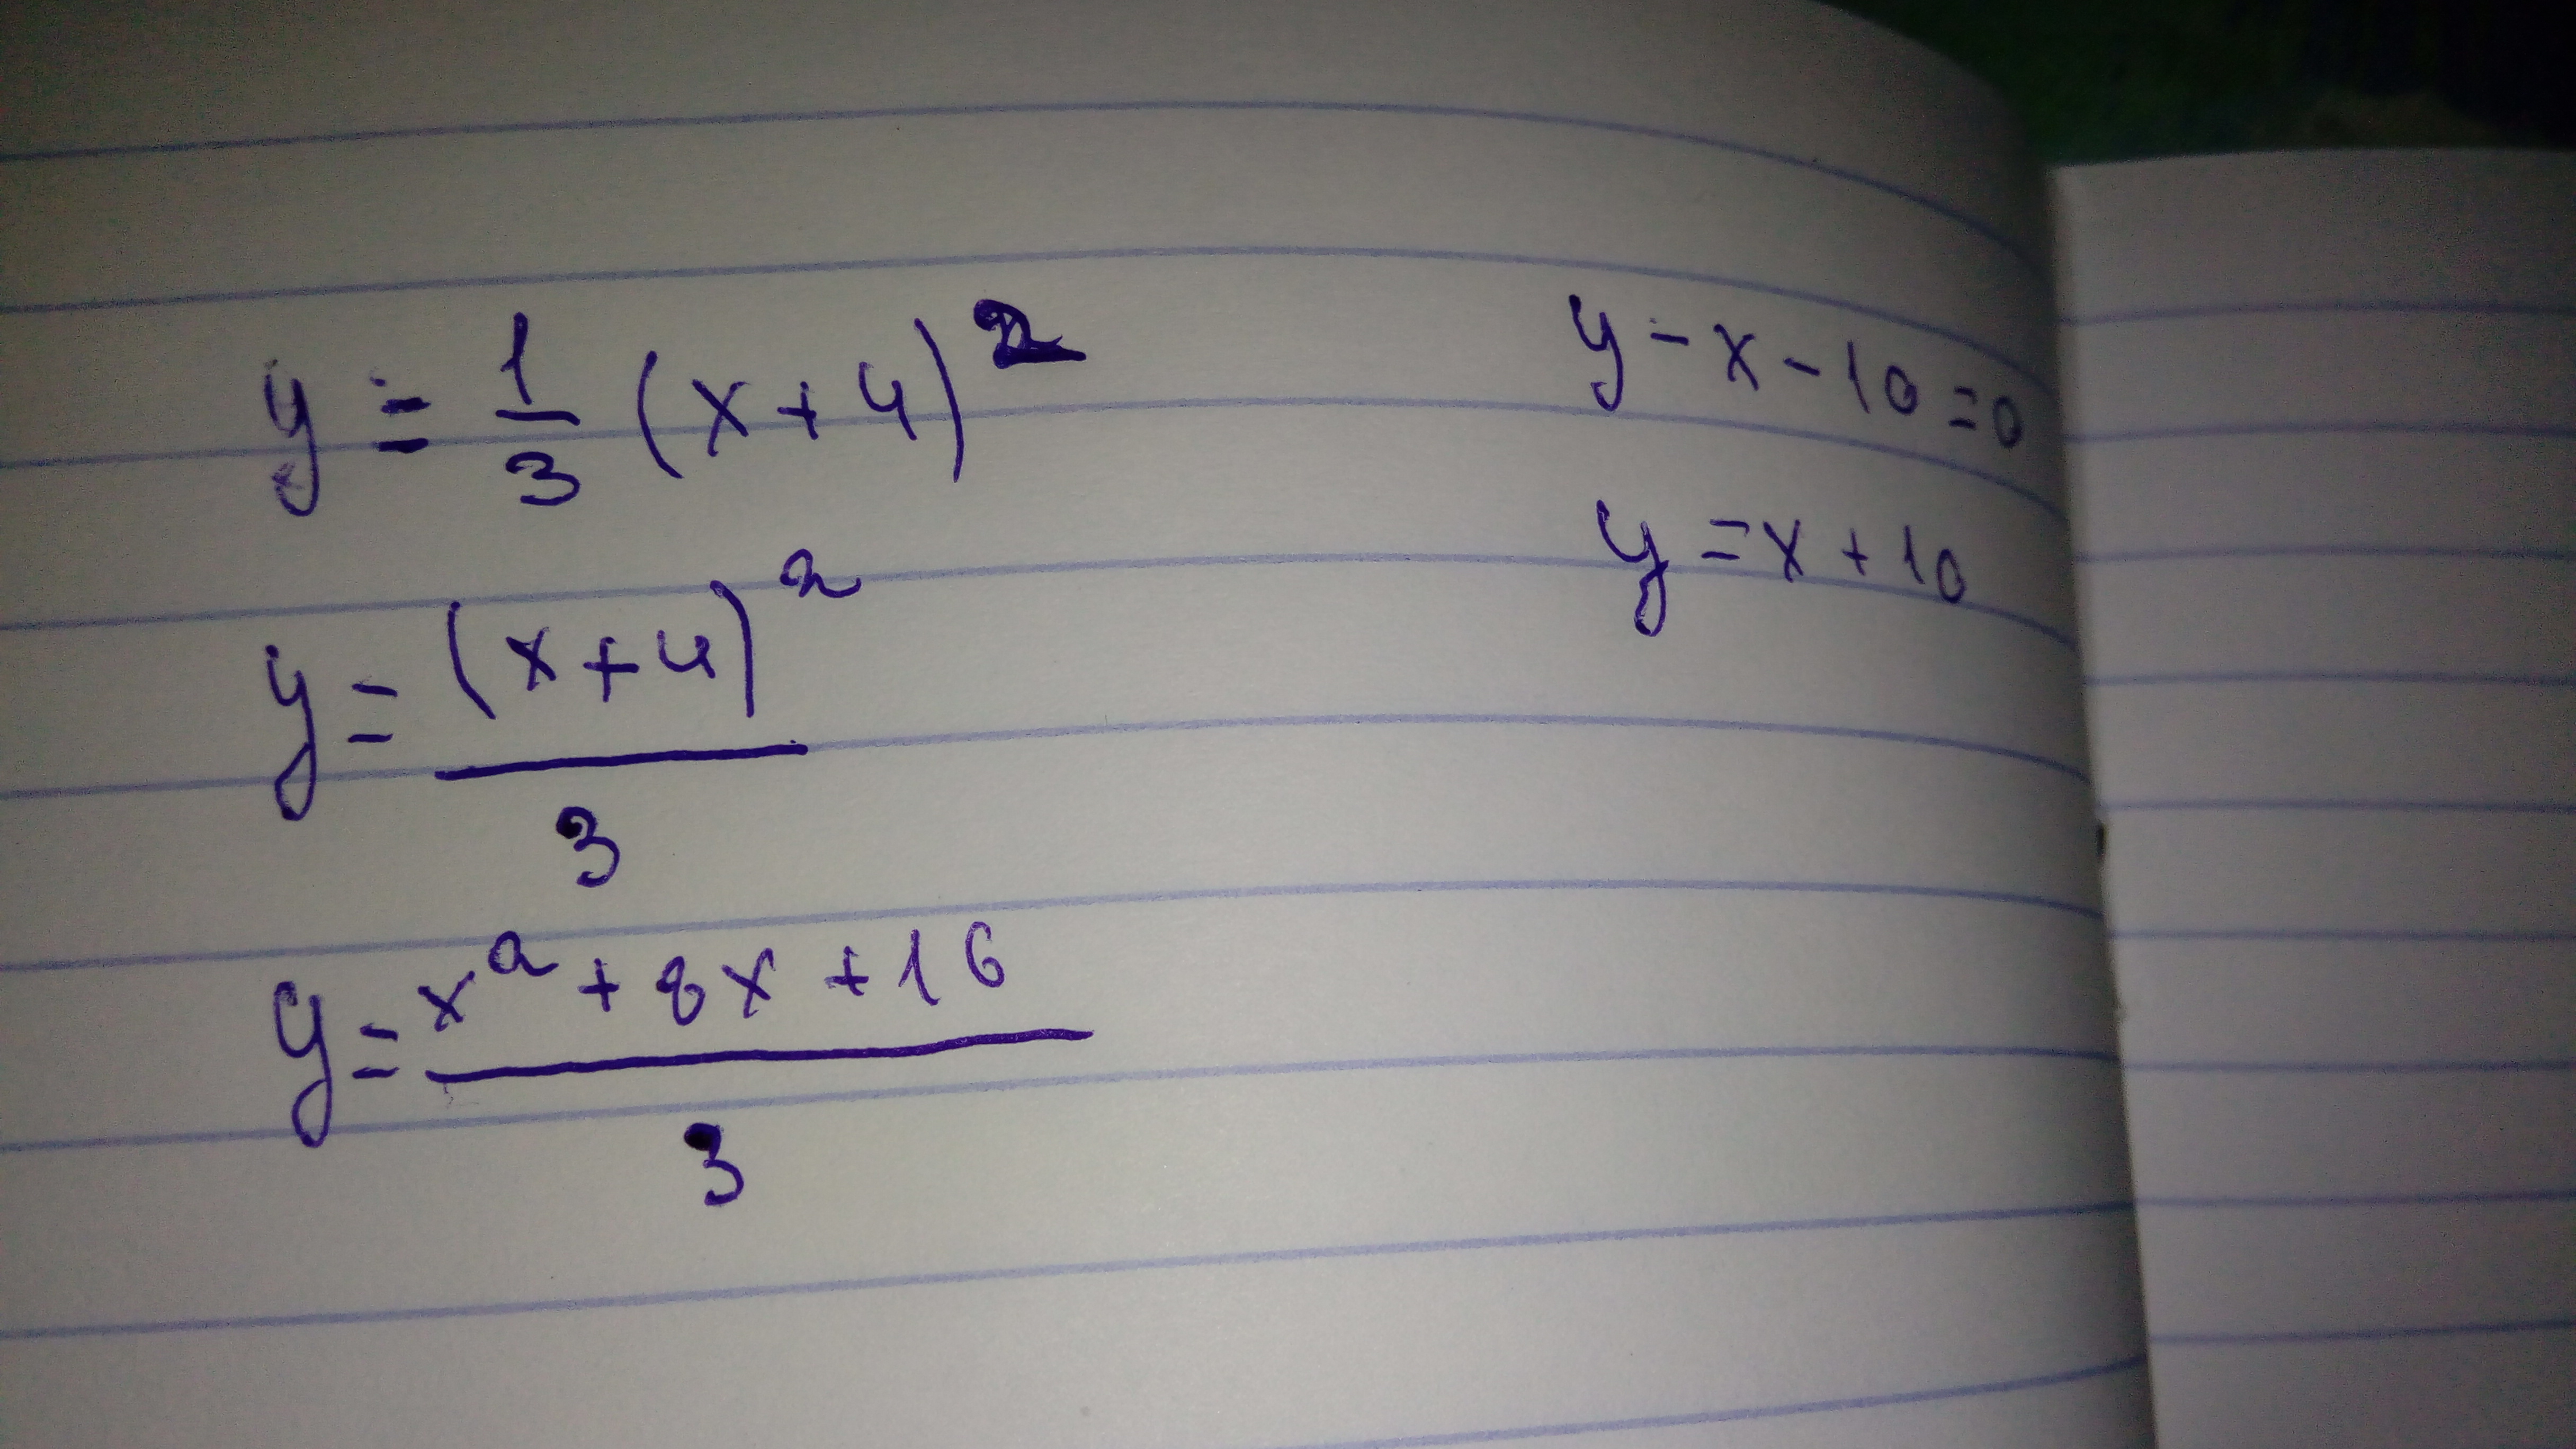 y = 1/3 (x+4)²
y = (x+4)² / 3
y = x² + 8x + 16 / 3
y - x - 10 = 0
y = x + 10